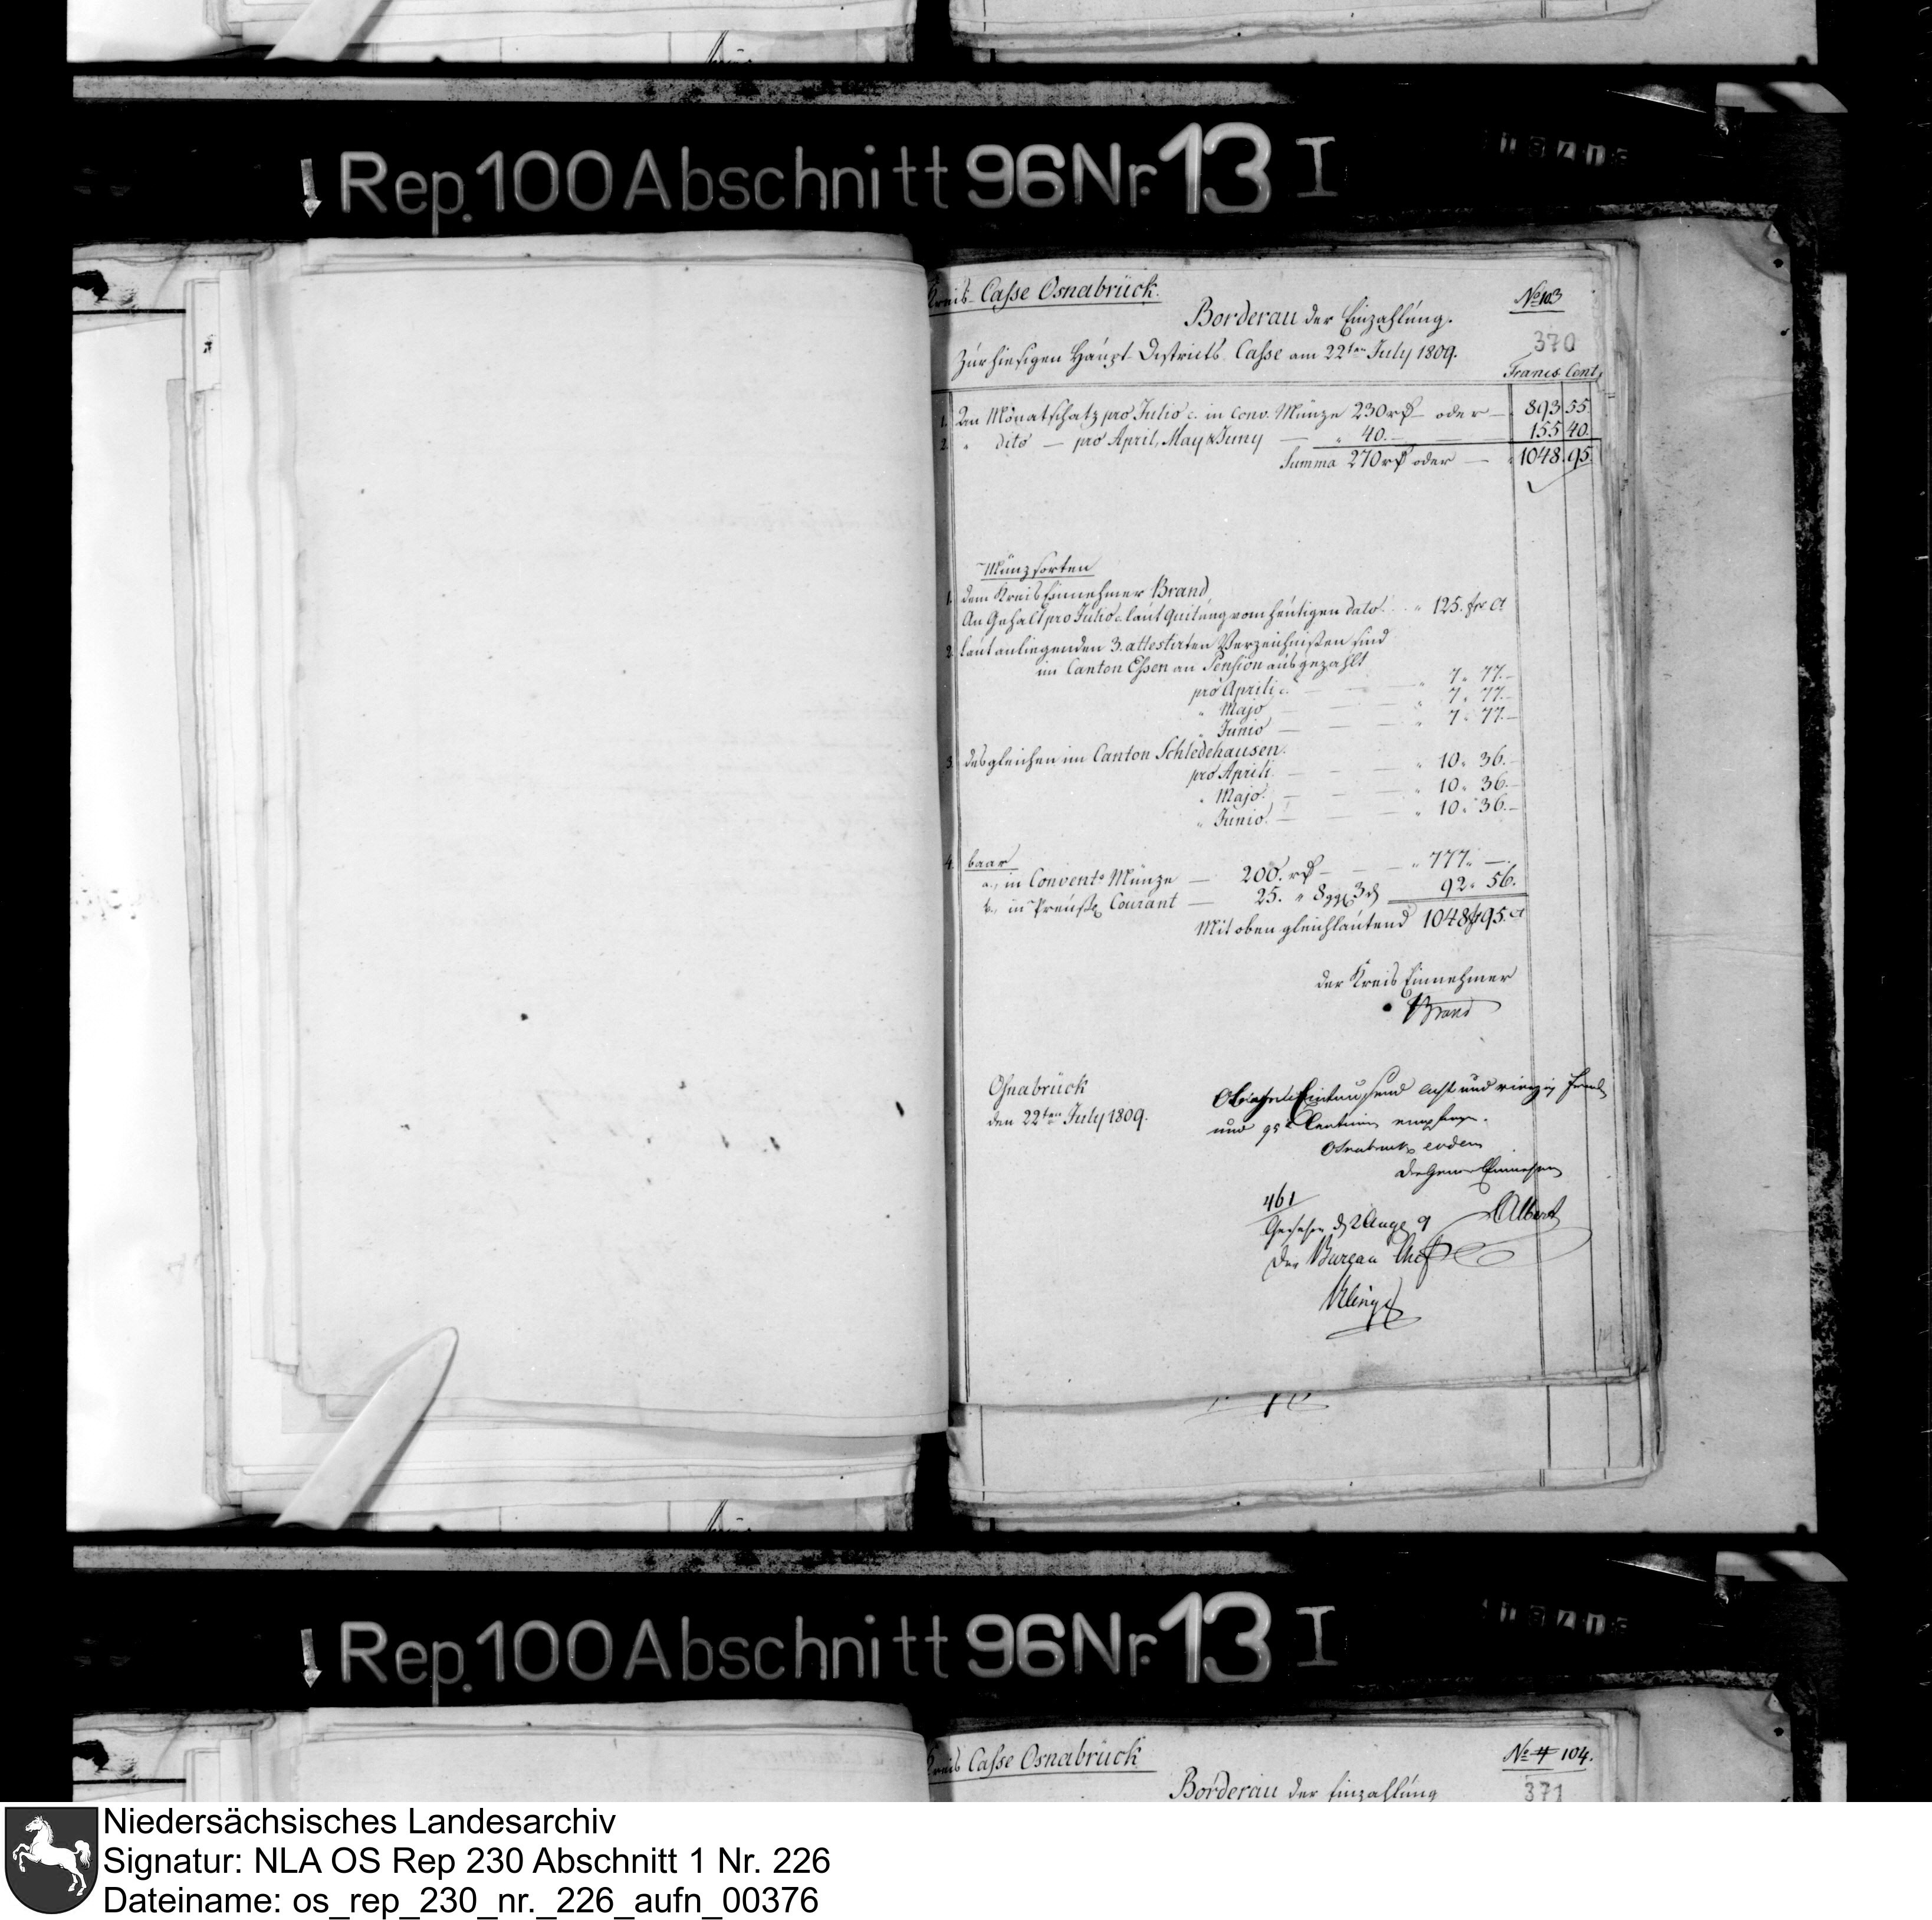 Rep. 100 Abschnitt 96 Nr. 13 I
Kreis-Casse Osnabrück.
No 103
Borderau der Einzahlung.
370
Zur hiesigen Haupt-Districts-Casse am 22ten July 1809.
Francs Cent.
1. An Monatschatz pro Julio c. in Conv. Münze 230 rthl oder — 893 55.
2. " dito — pro April, May & Juny — " 40. — 155 40.
Summa 270 rthl oder — 1048. 95
Münzsorten
1. dem Kreis Einnehmer Brand
An Gehalt pro Julio c. laut Quitung vom heutigen dato. " 125. frc Ct
2. laut anliegenden 3. attestirten Verzeichnißen sind
im Canton Essen an Pension ausgezahlt
pro Aprili c. — " 7. 77.
" Majo — " 7. 77.
" Junio — " 7. 77.
3. desgleichen im Canton Schledehausen.
pro Aprili. — " 10. 36.
" Majo. — " 10. 36.
" Junio. — " 10. 36.
4. baar
a., in Convent. Münze — 200. rthl — " 777. —.
b., in Preuß. Courant — 25. " 8 ggl 3 d 92. 56.
Mit oben gleichlautend 1048 fr 95. ct
der Kreis Einnehmer
Brand
Osnabrück
den 22ten July 1809.
Obige Eintausend Acht und vierzig Francs
und 95 Centimen empfangen.
Osnabrück eodem
Der General Einnehmer
Albert
461
Gesehen d 2 Aug 9
Der Bureau Chef
Klinge
Rep. 100 Abschnitt 96 Nr. 13 I
Kreis Casse Osnabrück
No 4 104.
Borderau der Einzahlung
371
Niedersächsisches Landesarchiv
Signatur: NLA OS Rep 230 Abschnitt 1 Nr. 226
Dateiname: os_rep_230_nr._226_aufn_00376